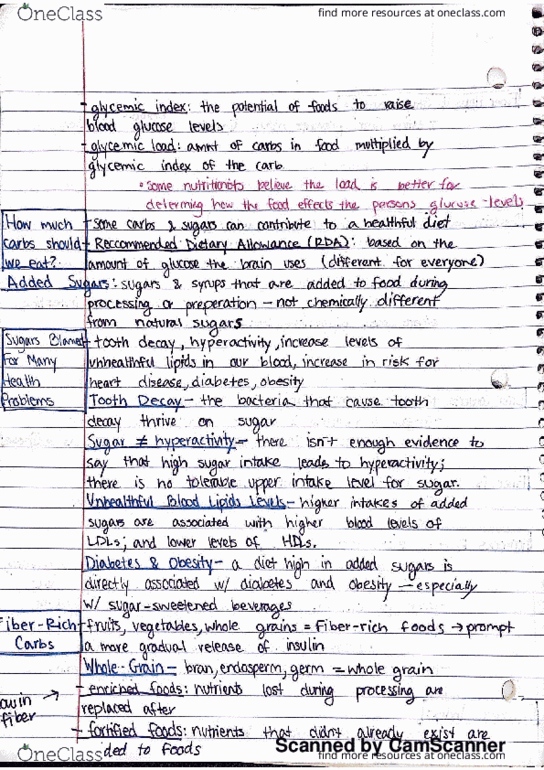 OneClass
find more resources at oneclass.com
- glycemic index: the potential of foods to raise
blood glucose levels
- glycemic load: amnt of carbs in food multiplied by
glycemic index of the carb
• some nutritionists believe the load is better for
determing how the food effects the persons glucose levels
How much
carbs should
we eat?
- some carbs & sugars can contribute to a healthful diet
- Recommended Dietary Allowance (RDA): based on the
amount of glucose the brain uses (different for everyone)
Added Sugars: sugars & syrups that are added to food during
processing or preperation - not chemically different
from natural sugars
Sugars Blamed
for Many
Health
Problems
- tooth decay, hyperactivity, increase levels of
unhealthful lipids in our blood, increase in risk for
heart disease, diabetes, obesity
Tooth Decay - the bacteria that cause tooth
decay thrive on sugar
Sugar ≠ hyperactivity - there isn't enough evidence to
say that high sugar intake leads to hyperactivity;
there is no tolerable upper intake level for sugar.
Unhealthful Blood Lipids Levels - higher intakes of added
sugars are associated with higher blood levels of
LDLs; and lower levels of HDLs.
Diabetes & Obesity - a diet high in added sugars is
directly associated w/ diabetes and obesity - especially
w/ sugar-sweetened beverages
Fiber-Rich
Carbs
- fruits, vegetables, whole grains = fiber-rich foods → prompt
a more gradual release of insulin
Whole-Grain - bran, endosperm, germ = whole grain
ow in →
fiber
- enriched foods: nutrients lost during processing are
replaced after
- fortified foods: nutrients that didnt already exist are
ded to foods
Scanned by CamScanner
OneClass
find more resources at oneclass.com